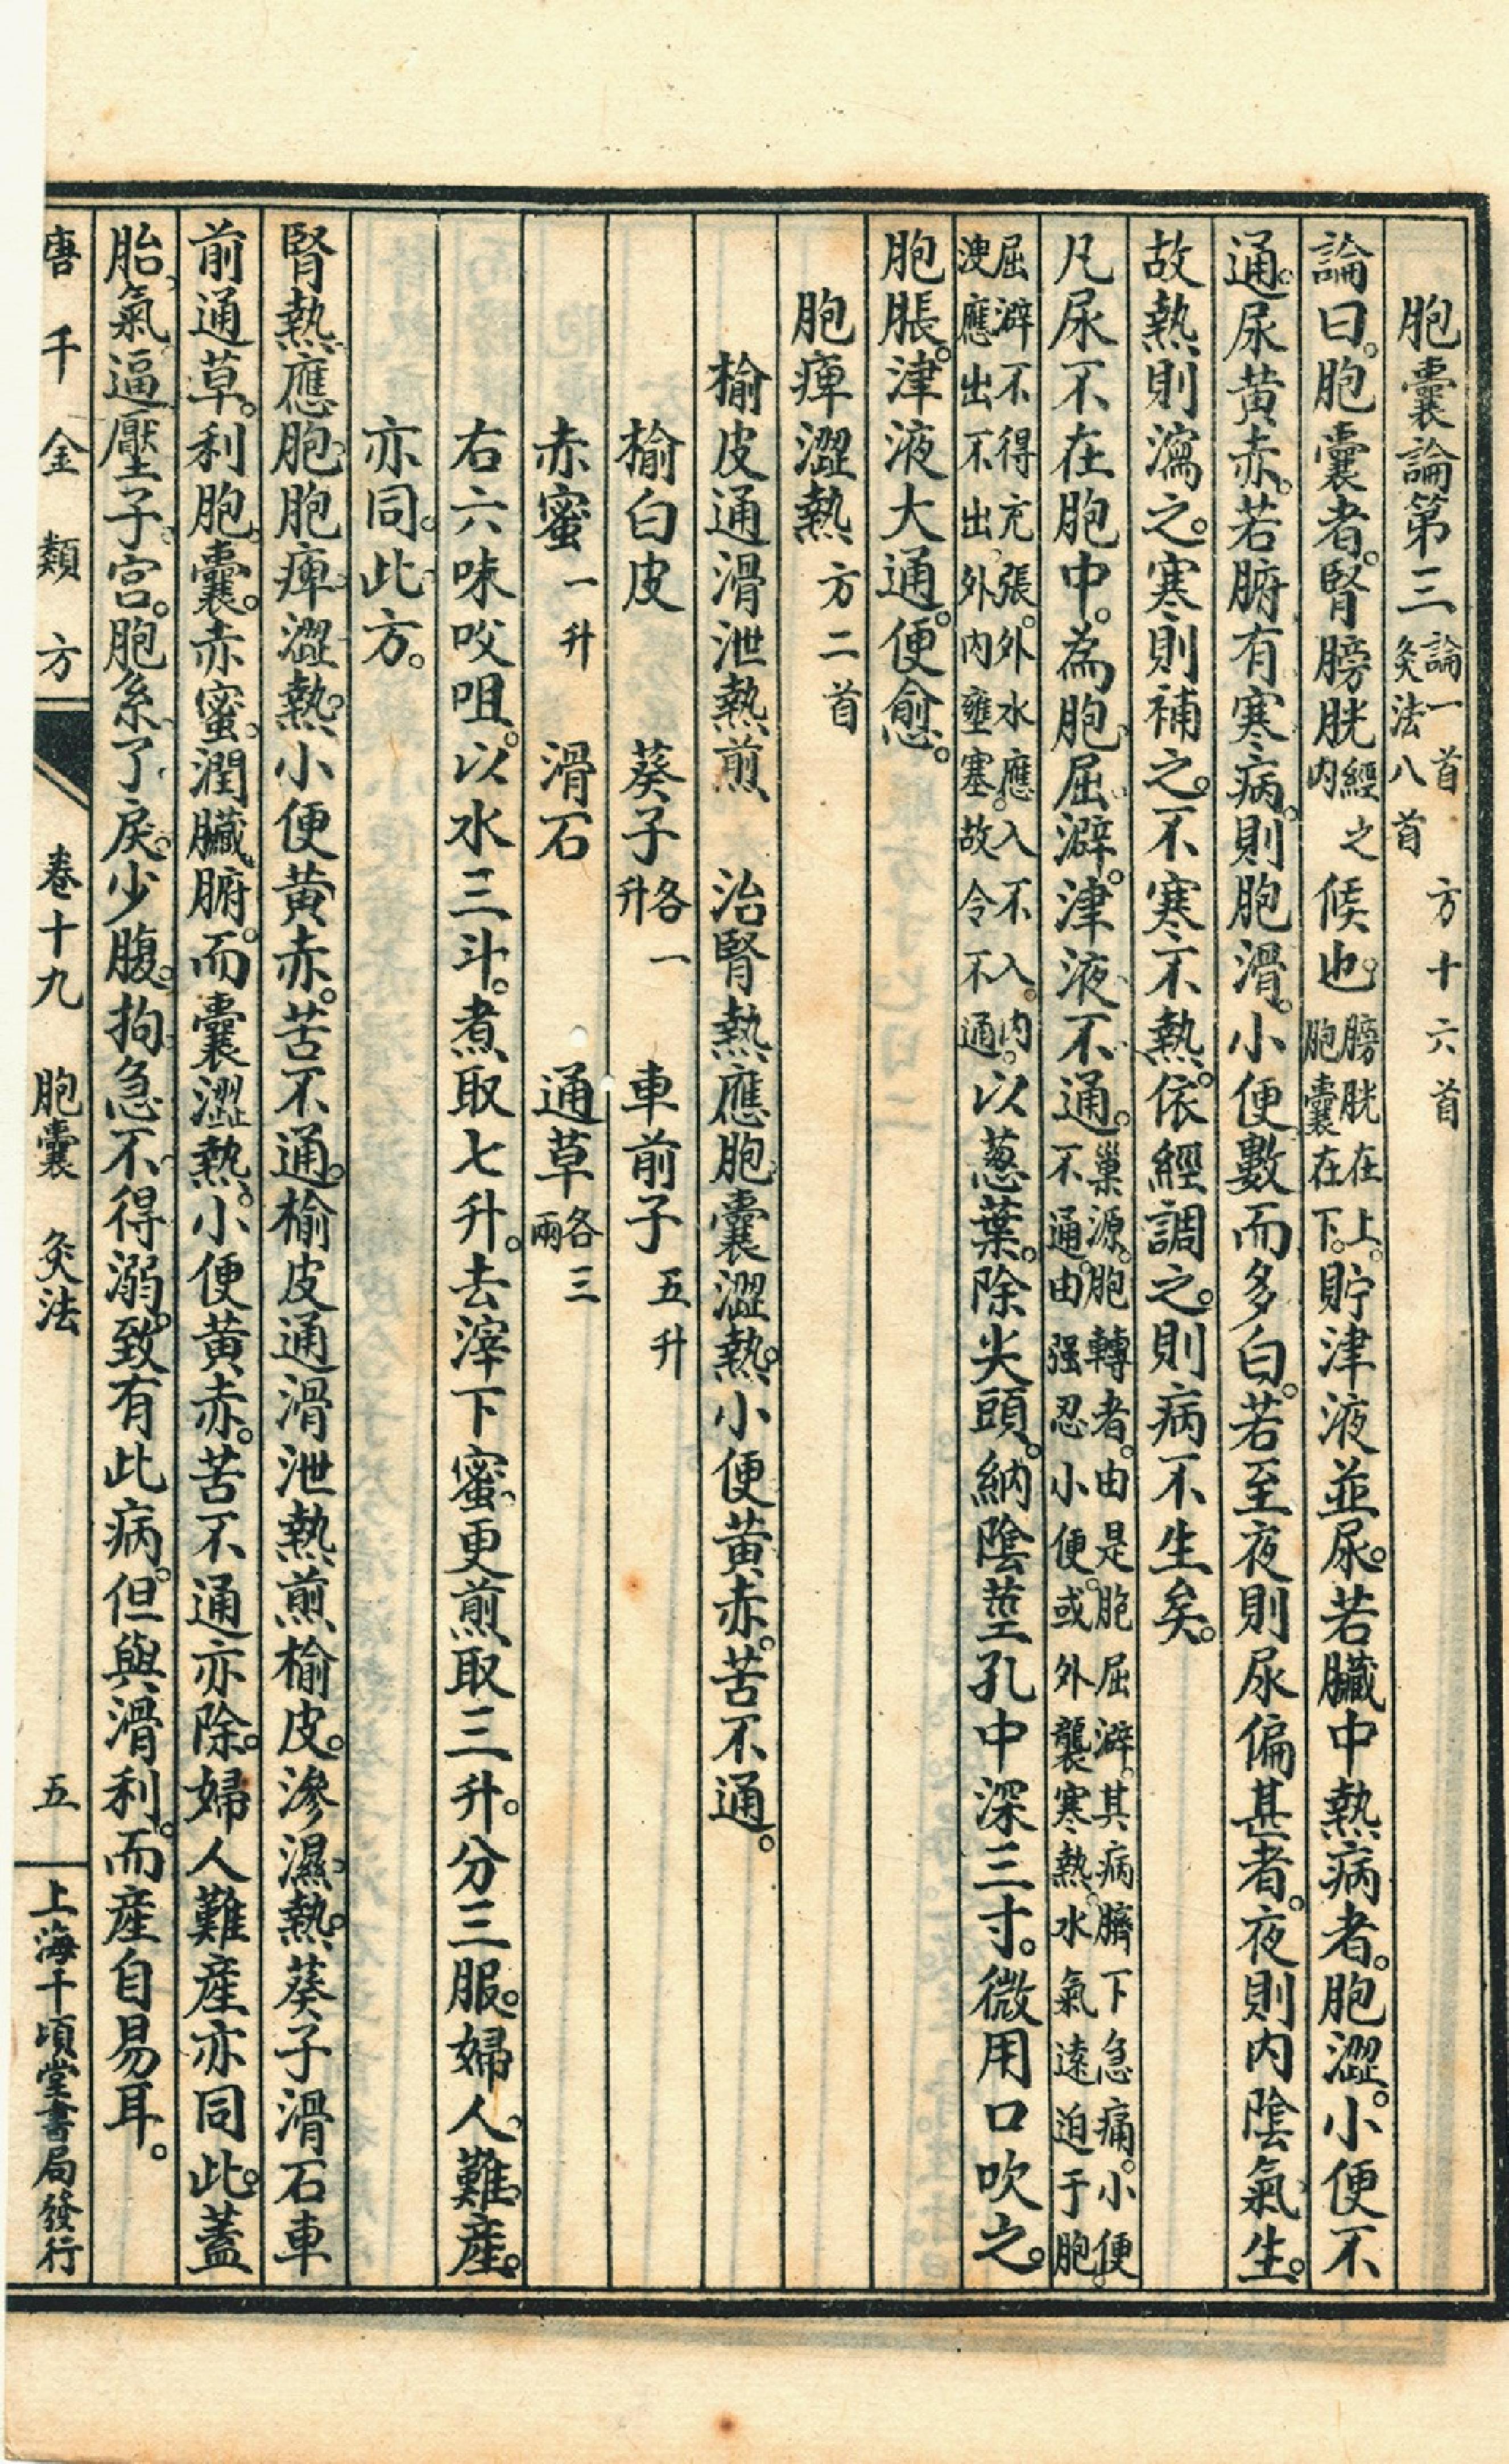 胞囊論第三 論一首 方十六首 灸法八首
論曰。胞囊者。腎膀胱經之內候也。膀胱在上。胞囊在下。貯津液並尿。若臟中熱病者。胞澀。小便不
通。尿黃赤。若腑有寒病。則胞滑。小便數而多白。若至夜則尿偏甚者。夜則內陰氣生。
故熱則瀉之。寒則補之。不寒不熱。依經調之。則病不生矣。
凡尿不在胞中。為胞屈澼。津液不通。巢源。胞轉者。由是胞屈澼。其病臍下急痛。小便不通。由强忍小便。或外襲寒熱。水氣遠迫于胞
屈澼不得充張。外水應入不入。內洩應出不出。外內壅塞。故令不通。以葱葉。除尖頭。納陰莖孔中深三寸。微用口吹之。
胞脹。津液大通。便愈。
胞痺澀熱 方二首
榆皮通滑泄熱煎 治腎熱應胞囊澀熱。小便黃赤。苦不通。
榆白皮 葵子各一升 車前子五升
赤蜜一升 滑石 通草各三兩
右六味㕮咀。以水三斗。煮取七升。去滓下蜜。更煎取三升。分三服。婦人難産。
亦同此方。
腎熱應胞。胞痺澀熱。小便黃赤。苦不通。榆皮通滑泄熱煎榆皮。滲濕熱。葵子滑石車
前通草。利胞囊。赤蜜潤臟腑。而囊澀熱。小便黃赤。苦不通亦除。婦人難産亦同此。蓋
胎氣逼壓子宮。胞系了戾。少腹拘急。不得溺。致有此病。但與滑利。而産自易耳。
唐千金類方 卷十九 胞囊 灸法 五 上海千頃堂書局發行